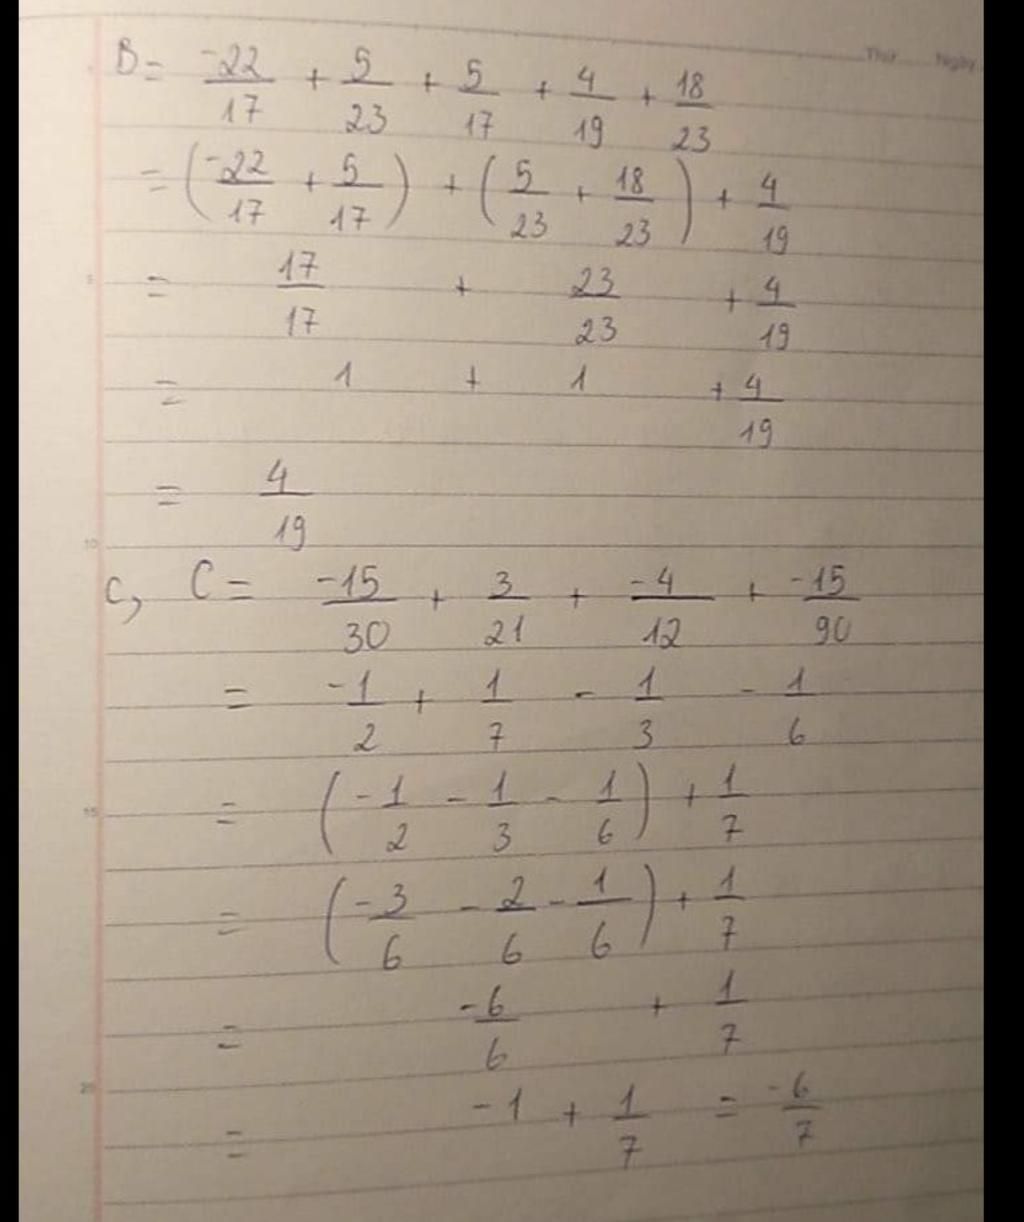 Thứ Ngày
B = -22/17 + 5/23 + 5/17 + 4/19 + 18/23
= (-22/17 + 5/17) + (5/23 + 18/23) + 4/19
= 17/17 + 23/23 + 4/19
= 1 + 1 + 4/19
= 4/19
C, C = -15/30 + 3/21 + -4/12 + -15/90
= -1/2 + 1/7 - 1/3 - 1/6
= (-1/2 - 1/3 - 1/6) + 1/7
= (-3/6 - 2/6 - 1/6) + 1/7
= -6/6 + 1/7
= -1 + 1/7 = -6/7